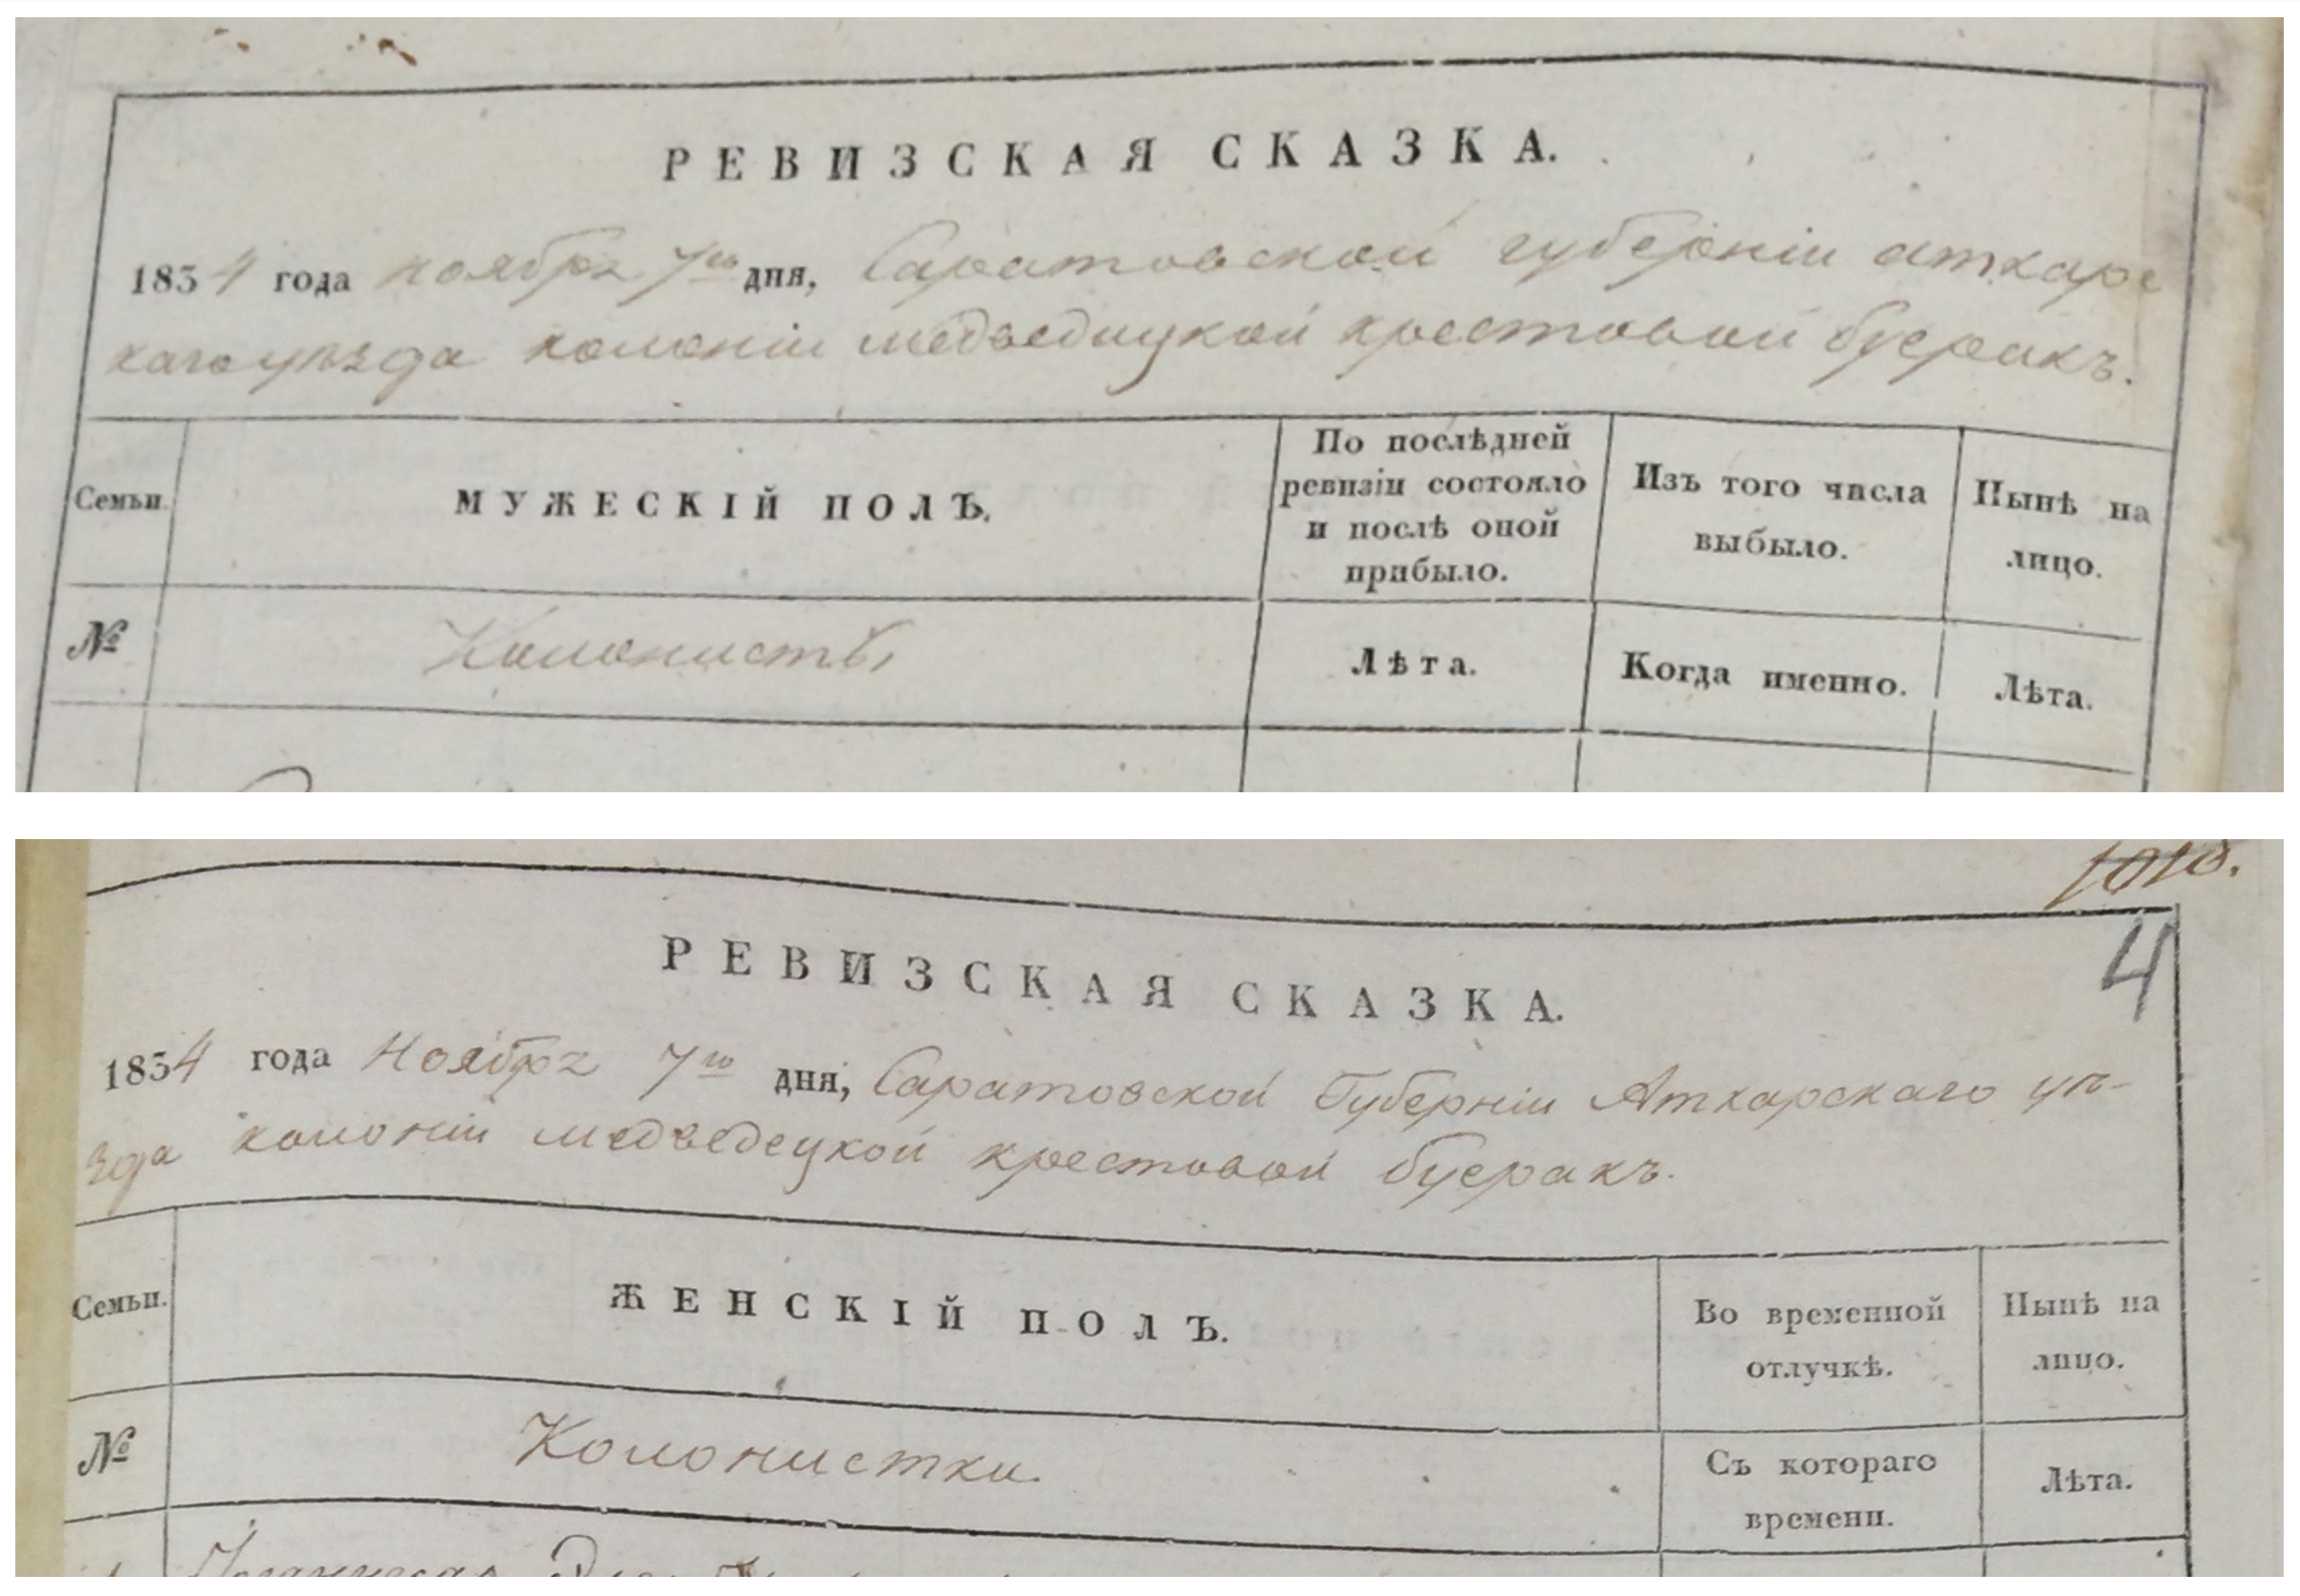 РЕВИЗСКАЯ СКАЗКА.
1854 года ноября 7го дня, Саратовской губерніи аткарс
каго уѣзда колоніи медведицкой крестовой буеракъ.
Семьи.
МУЖЕСКІЙ ПОЛЪ.
По послѣдней
ревизіи состояло
и послѣ оной
прибыло.
Изъ того числа
выбыло.
Нынѣ на
лицо.
№
Колонисты
Лѣта.
Когда именно.
Лѣта.
1010.
4
РЕВИЗСКАЯ СКАЗКА.
1854 года Ноября 7го дня, Саратовской Губерніи Аткарскаго уѣ-
зда колоніи медведецкой крестовой буеракъ.
Семьи.
ЖЕНСКІЙ ПОЛЪ.
Во временной
отлучкѣ.
Нынѣ на
лицо.
№
Колонистки.
Съ котораго
времени.
Лѣта.